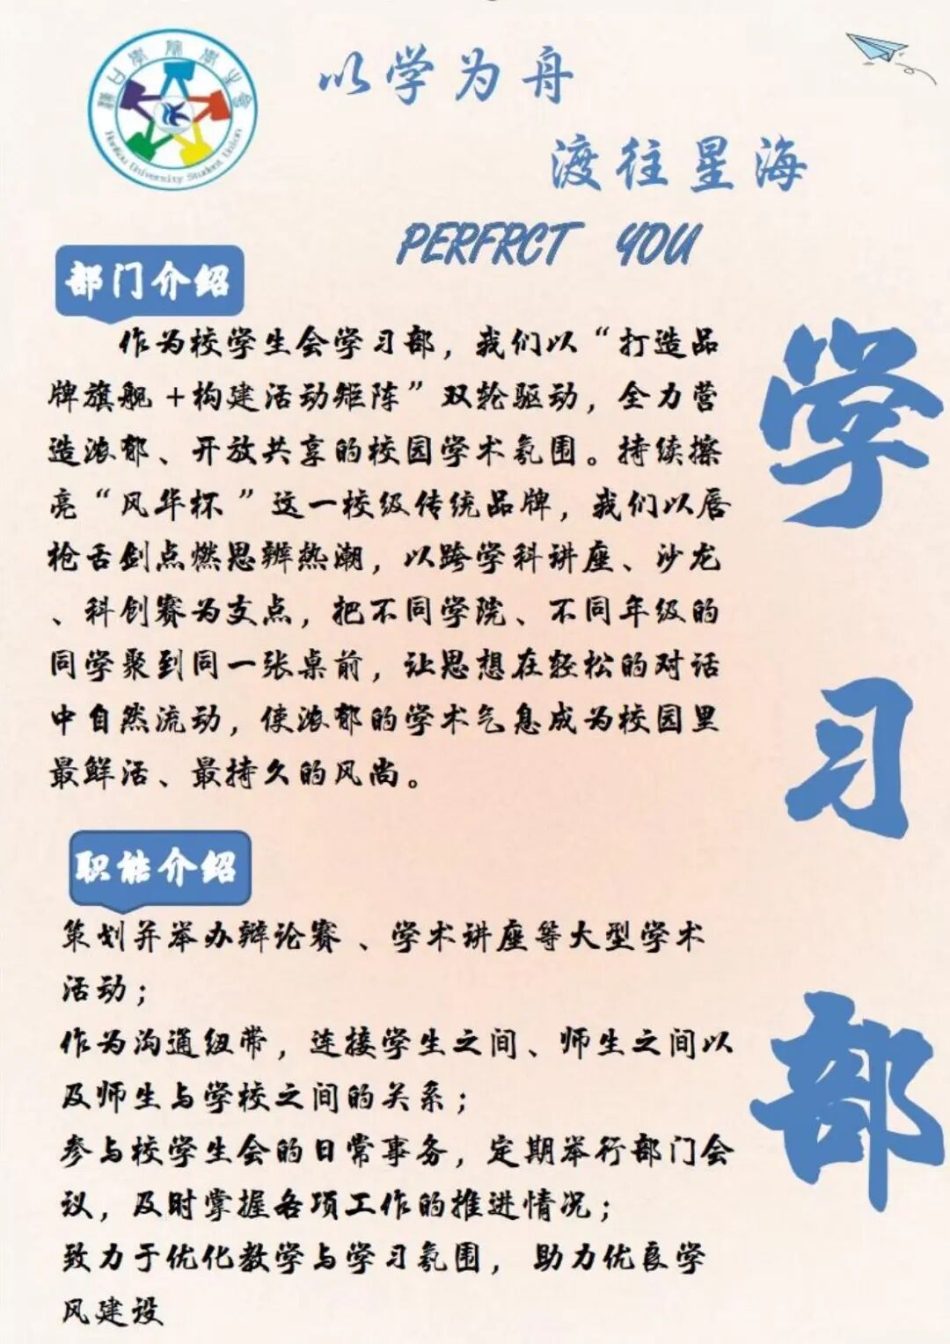 汉口学院学生会
Hankou University Student Union
以学为舟
渡往星海
PERFRCT YOU
部门介绍
作为校学生会学习部，我们以“打造品
牌旗舰 +构建活动矩阵”双轮驱动，全力营
造浓郁、开放共享的校园学术氛围。持续擦
亮“风华杯 ”这一校级传统品牌，我们以唇
枪舌剑点燃思辨热潮，以跨学科讲座、沙龙
、科创赛为支点，把不同学院、不同年级的
同学聚到同一张桌前，让思想在轻松的对话
中自然流动，使浓郁的学术气息成为校园里
最鲜活、最持久的风尚。
学
习
部
职能介绍
策划并举办辩论赛 、学术讲座等大型学术
活动；
作为沟通纽带，连接学生之间、师生之间以
及师生与学校之间的关系；
参与校学生会的日常事务，定期举行部门会
议，及时掌握各项工作的推进情况；
致力于优化教学与学习氛围， 助力优良学
风建设